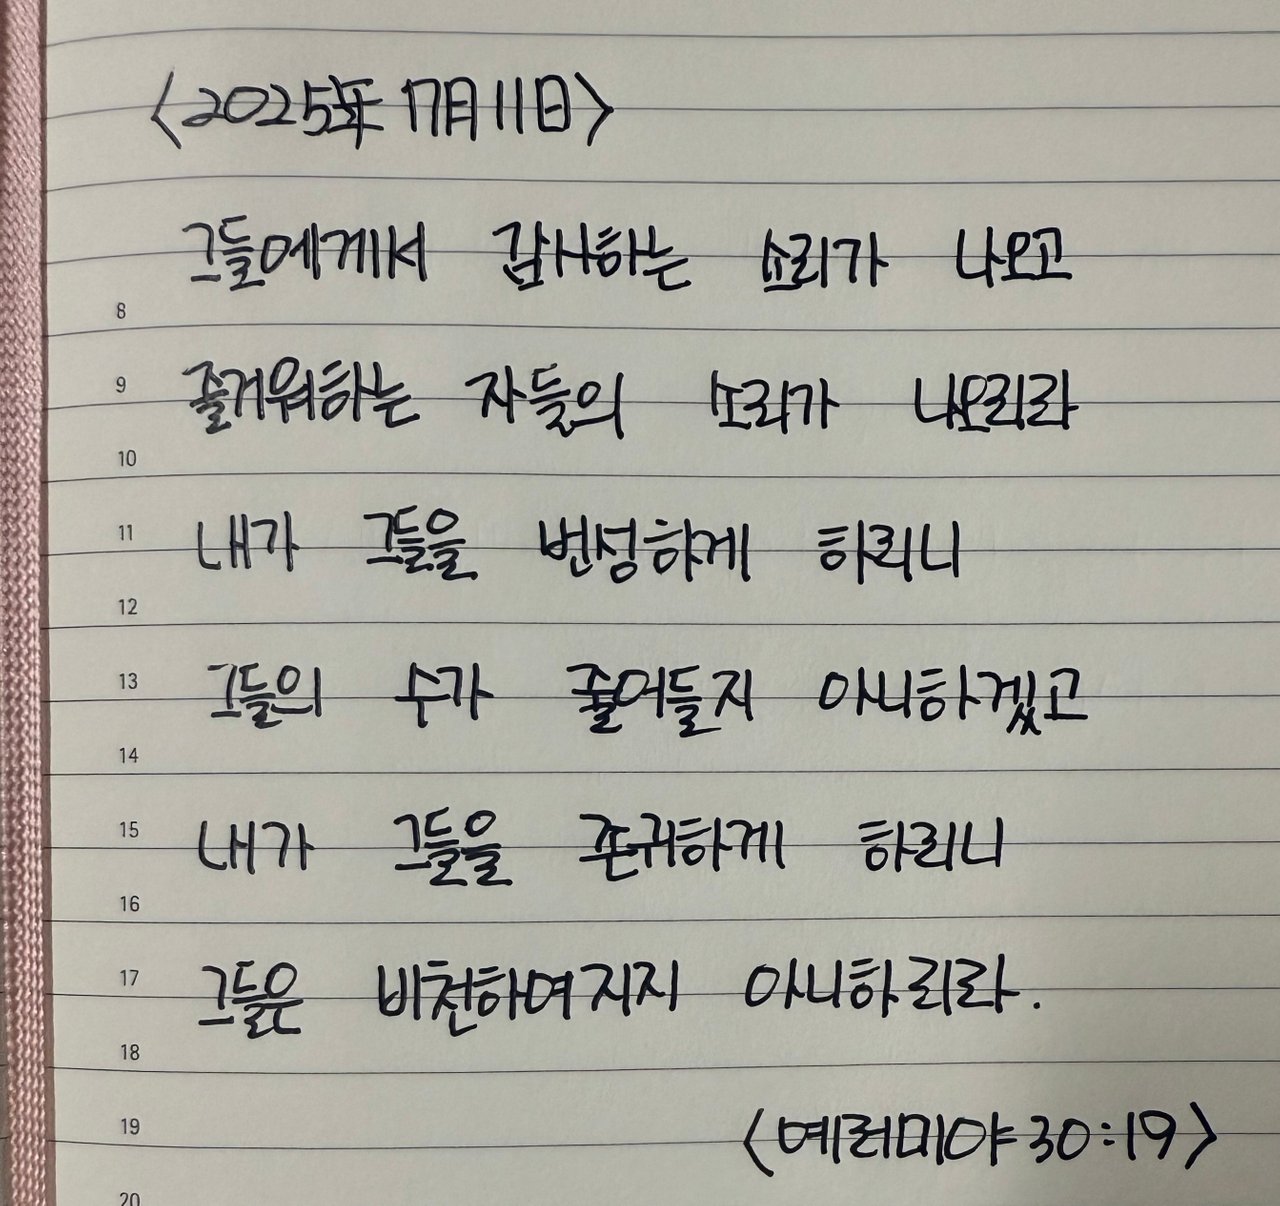 <2025年 7月 11日>
그들에게서 감사하는 소리가 나오고
8
9 즐거워하는 자들의 소리가 나오리라
10
11 내가 그들을 번성하게 하리니
12
13 그들의 수가 줄어들지 아니하겠고
14
15 내가 그들을 존귀하게 하리니
16
17 그들은 비천하여지지 아니하리라.
18
19 <예레미야 30:19>
20